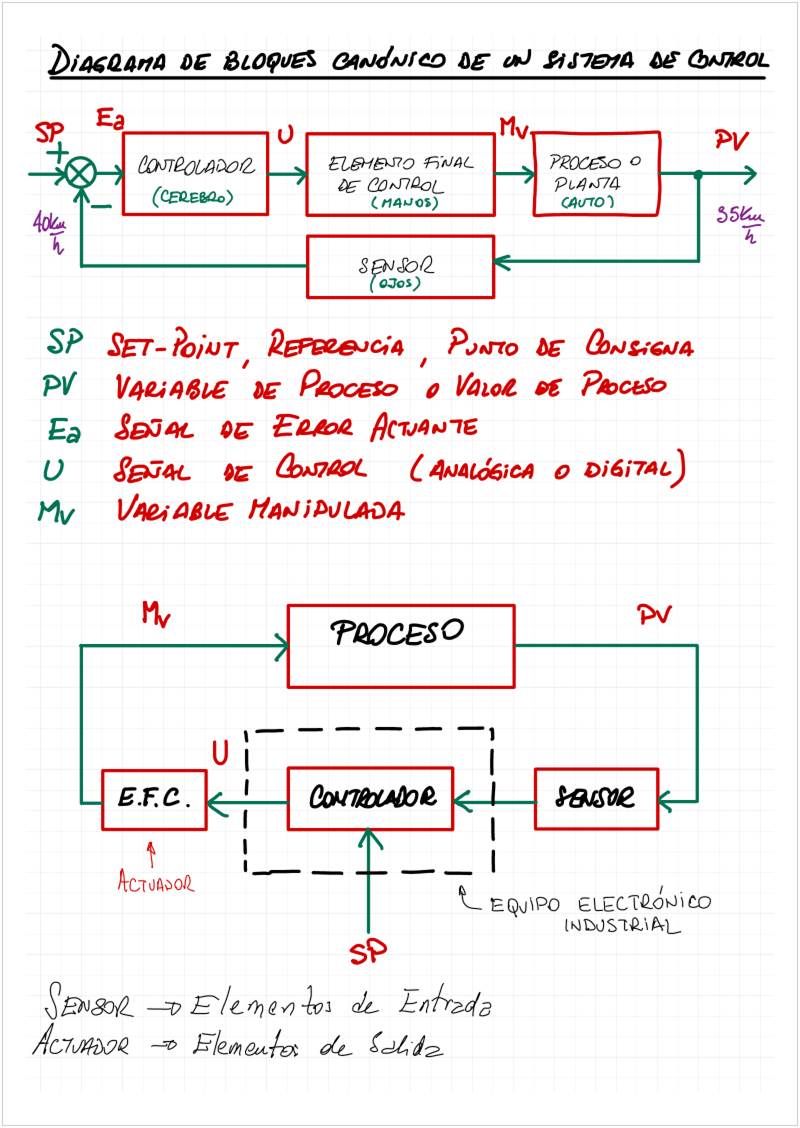 DIAGRAMA DE BLOQUES CANÓNICO DE UN SISTEMA DE CONTROL
SP
+
Ea
CONTROLADOR
(CEREBRO)
U
ELEMENTO FINAL
DE CONTROL
(MANOS)
Mv
PROCESO O
PLANTA
(AUTO)
PV
−
40km
h
35km
h
SENSOR
(OJOS)
SP SET-POINT, REFERENCIA, PUNTO DE CONSIGNA
PV VARIABLE DE PROCESO O VALOR DE PROCESO
Ea SEÑAL DE ERROR ACTUANTE
U SEÑAL DE CONTROL (ANALÓGICA O DIGITAL)
Mv VARIABLE MANIPULADA
Mv
PROCESO
PV
U
E.F.C.
CONTROLADOR
SENSOR
ACTUADOR
EQUIPO ELECTRÓNICO
INDUSTRIAL
SP
SENSOR → Elementos de Entrada
ACTUADOR → Elementos de Salida